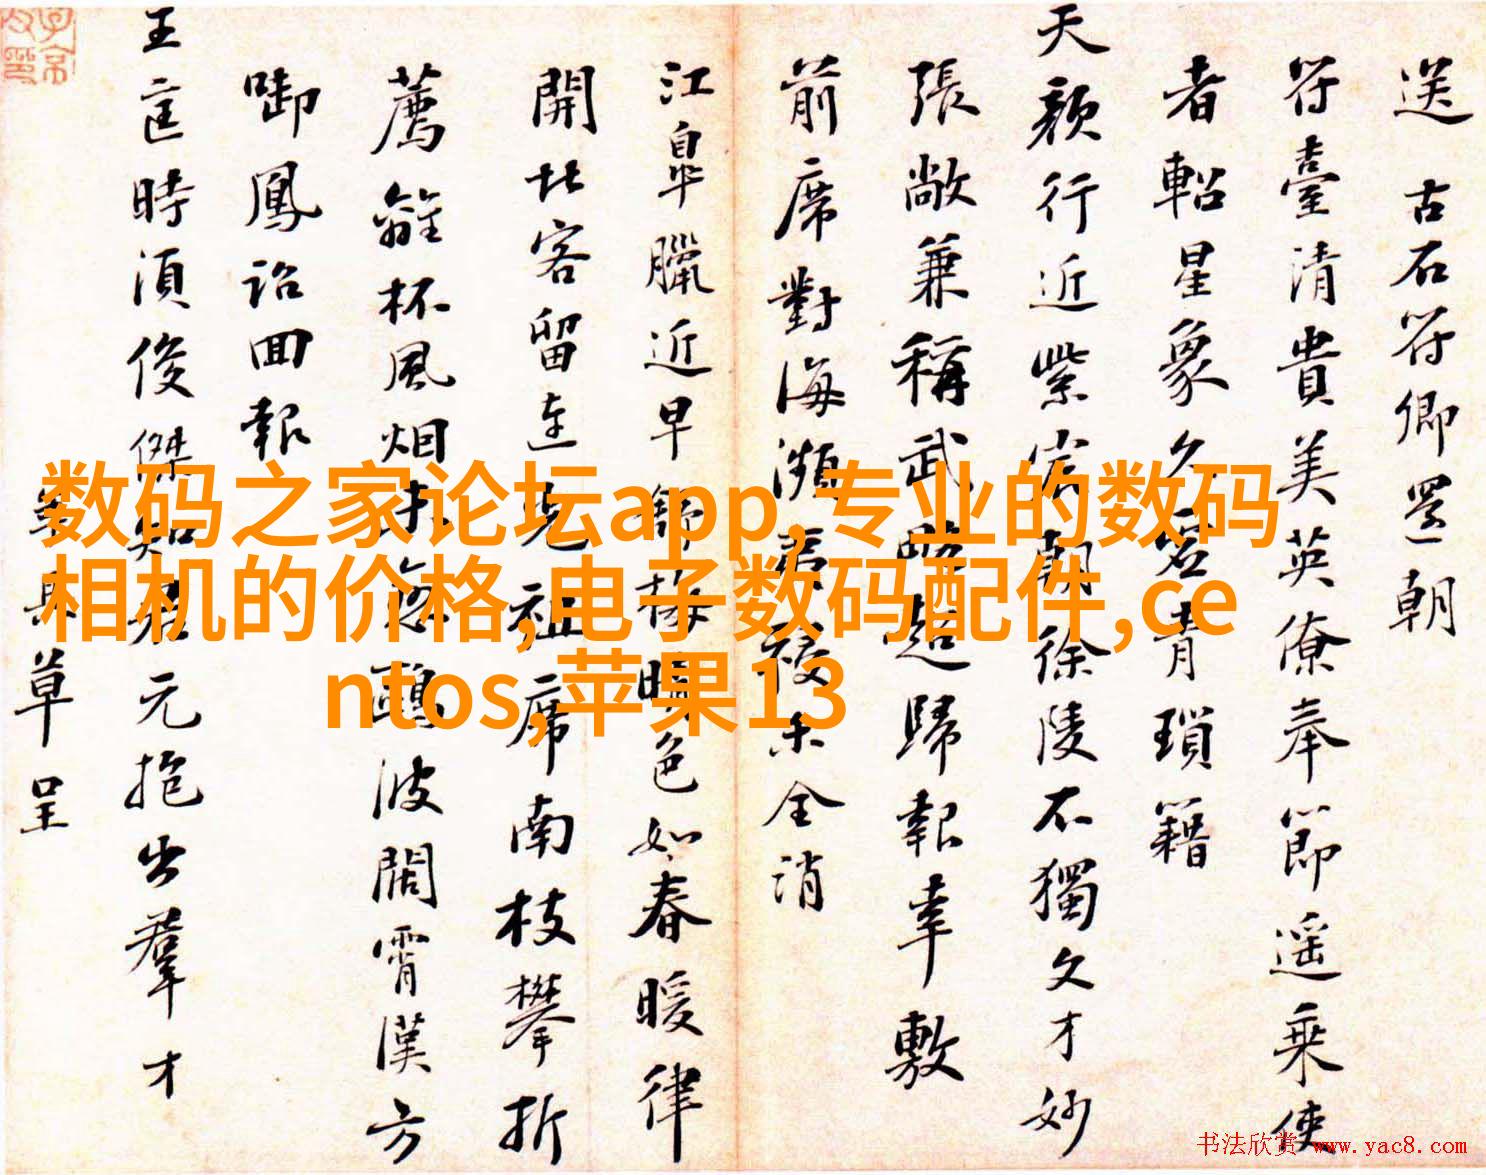 送古石符卿還朝
符臺清貴美英僚奉節遥乘使
者軺星象久名青瑣籍
天顔行近紫宸朝徐陵不獨文才妙
張敞兼稱武略超歸報幸敷
前席對海瀕夷祲未全消
江皋臘近早舒梅色如春暖律
開北客留連先祖席南枝攀折
薦離杯風烟鷗波闊霄漢方
啣鳳詔回報
王匡時須俊傑知君元抱出羣才
草呈
数码之家论坛app,专业的数码
相机的价格,电子数码配件,ce
ntos,苹果13
书法欣赏 www.yac8.com